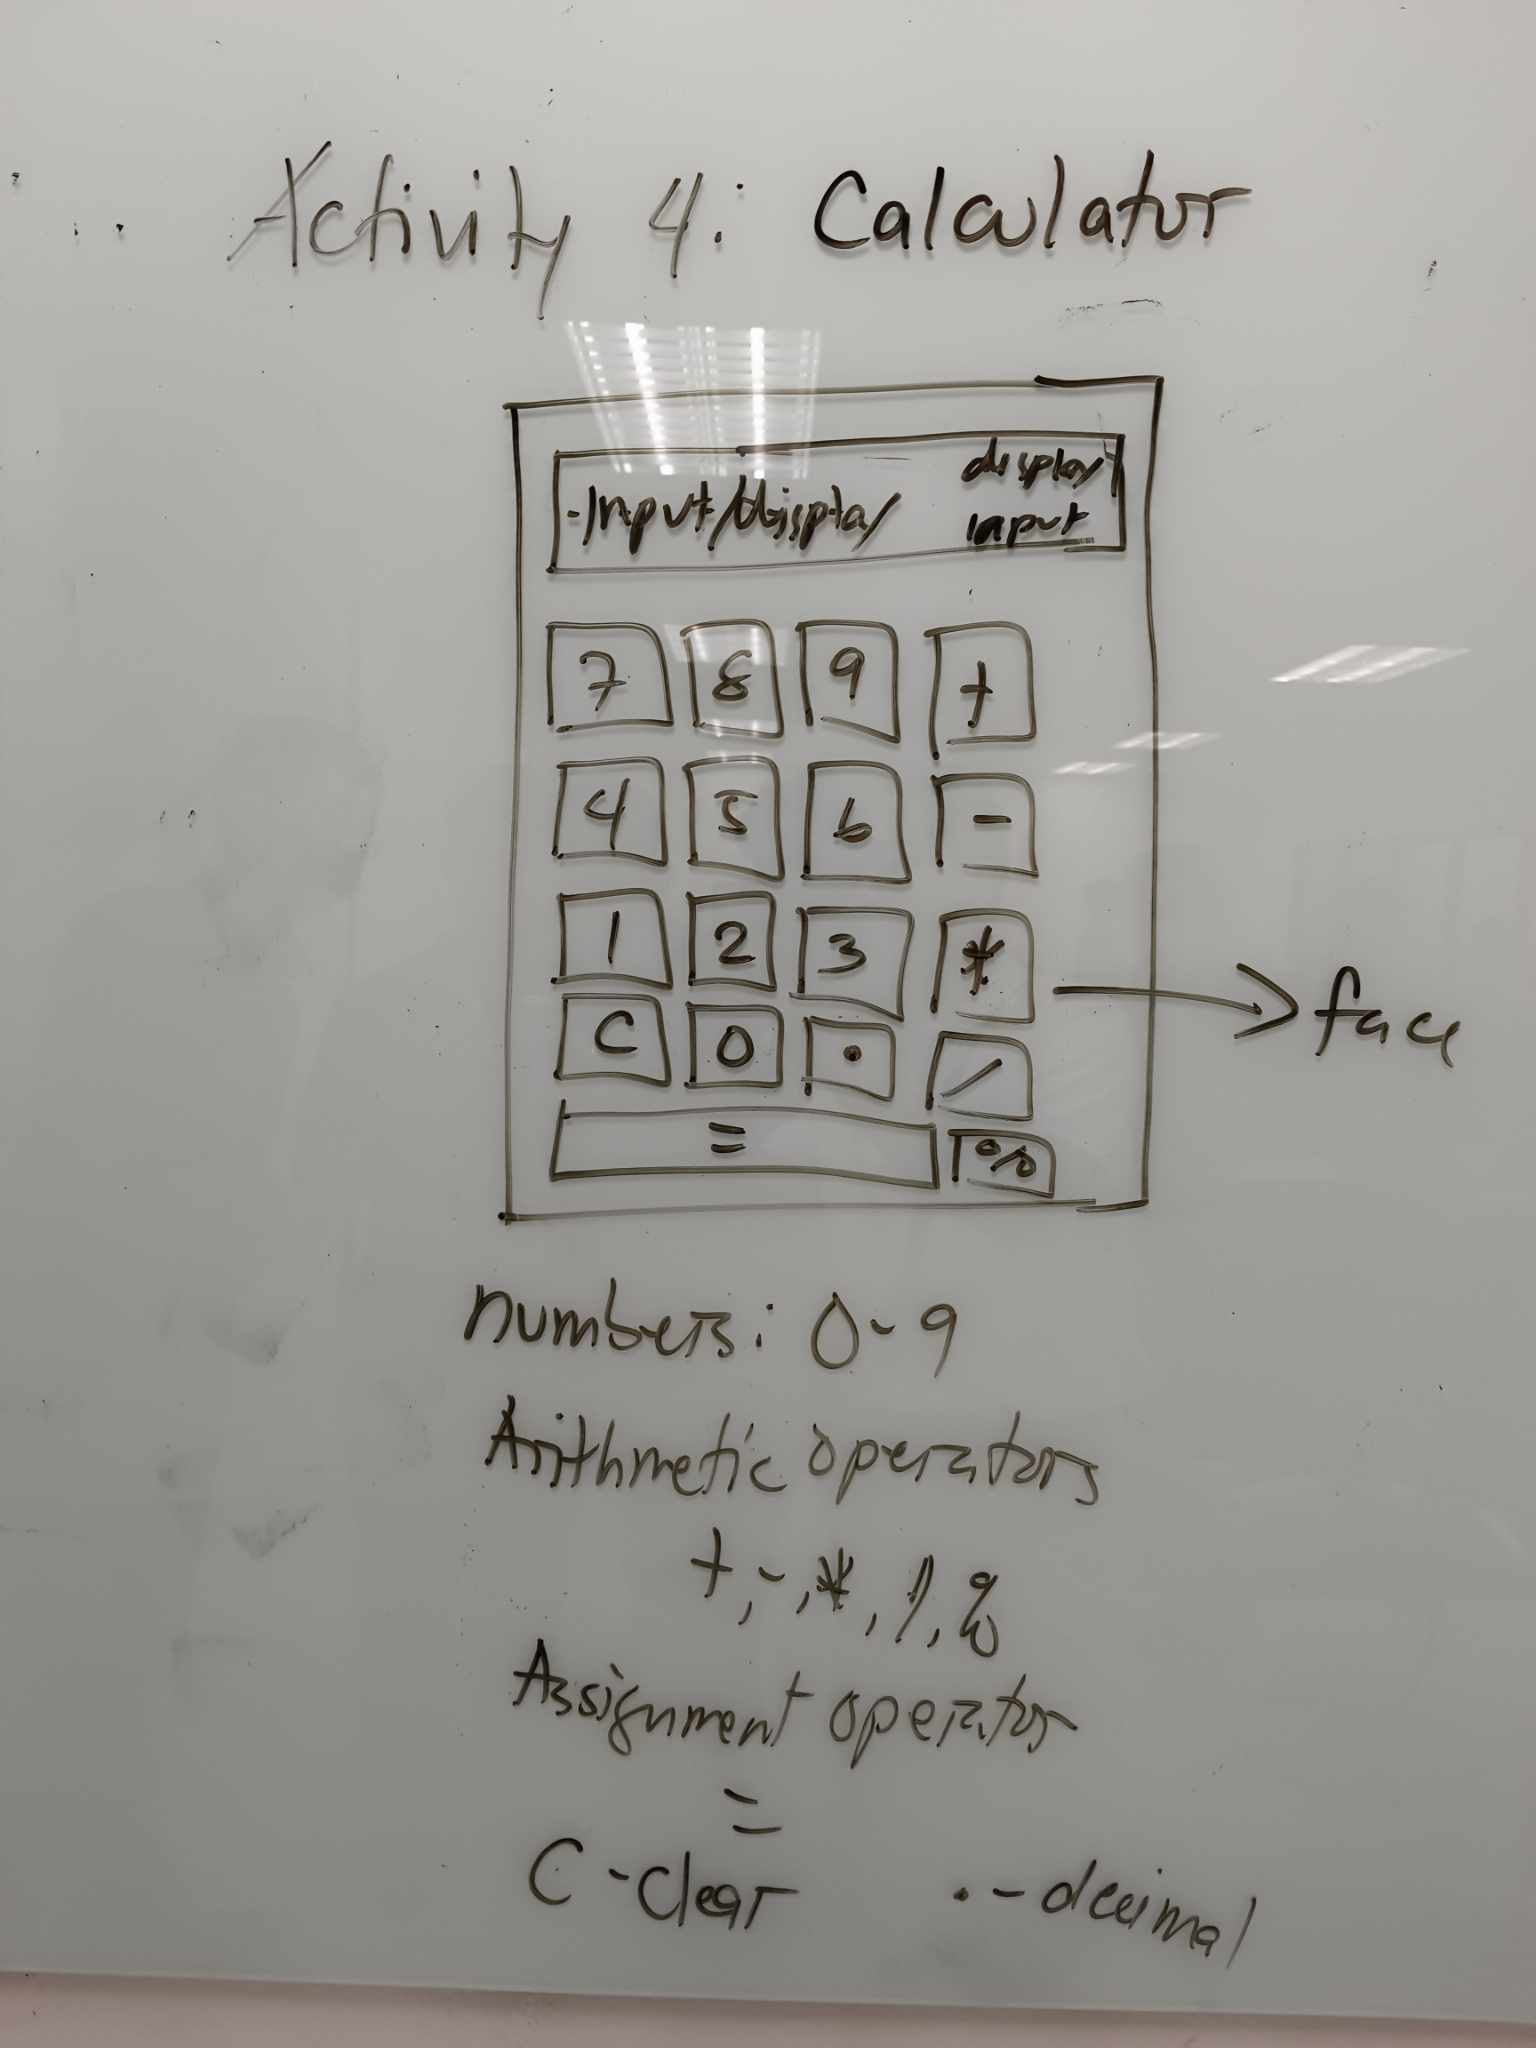 Activity 4: Calculator
-Input/display
display/
input
7 8 9 +
4 5 6 -
1 2 3 *
face
C 0 . /
= %
numbers: 0-9
Arithmetic operators
+, -, *, /, %
Assignment operator
=
C - Clear . - decimal